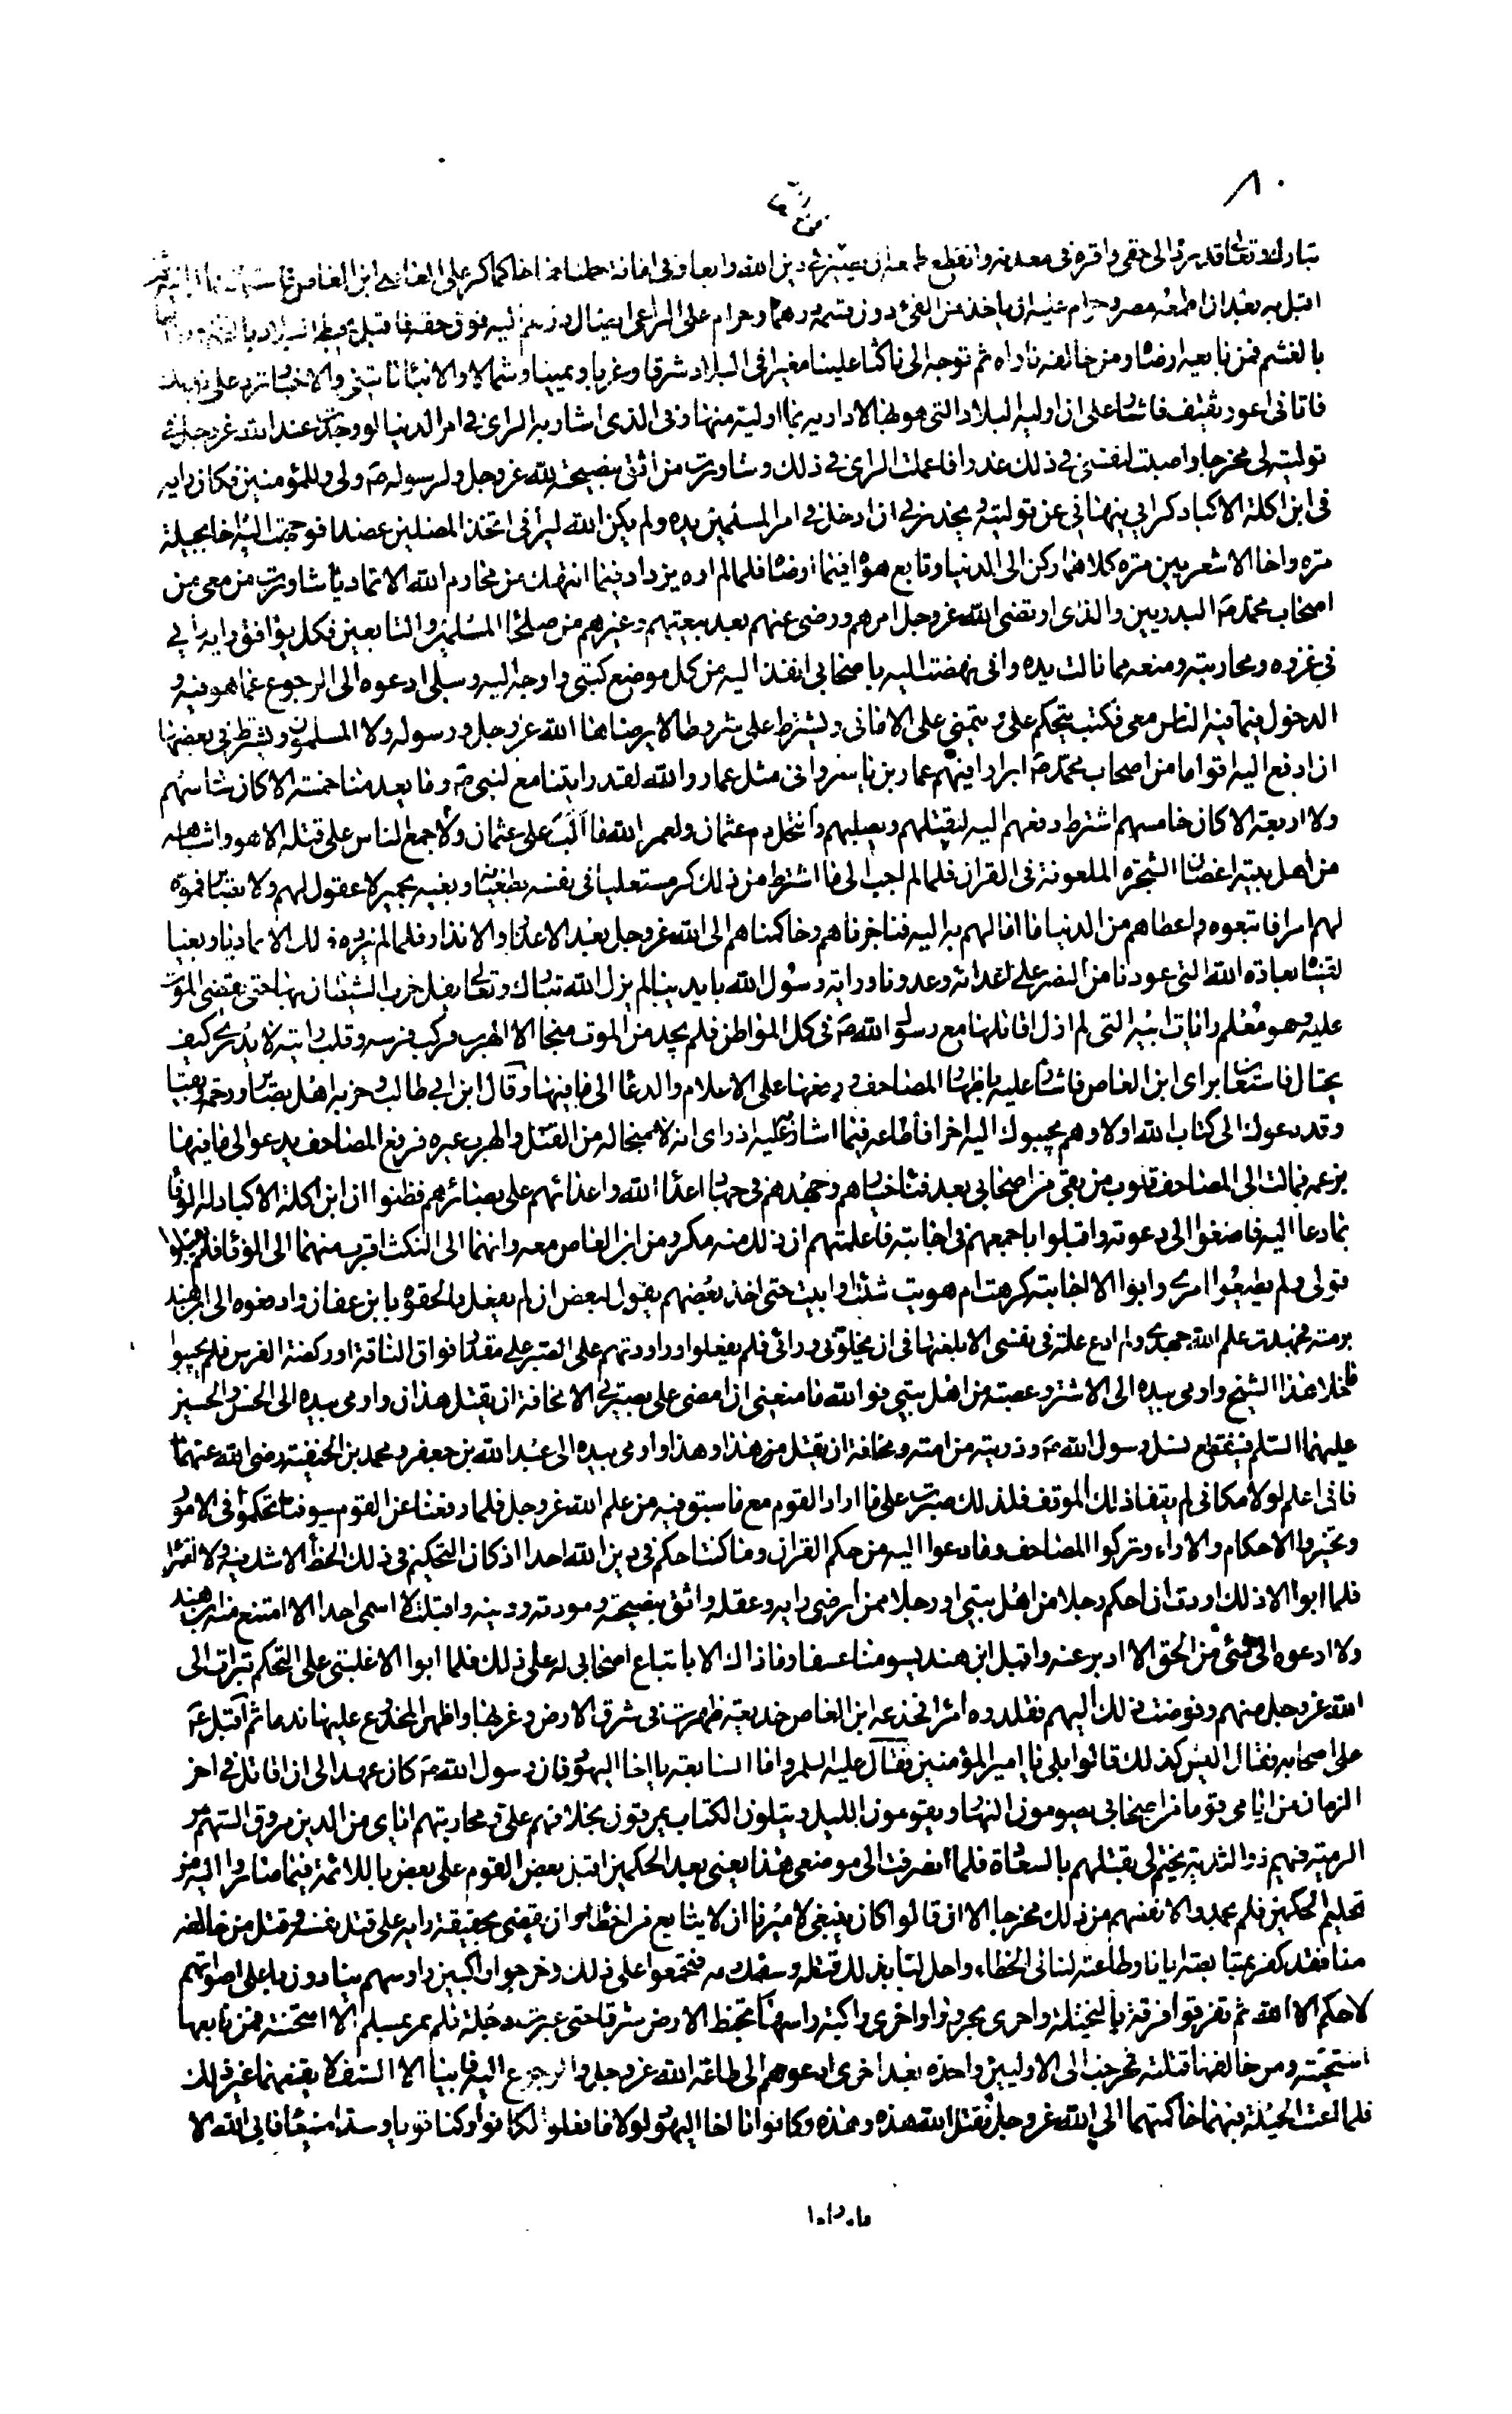 ٨٠
تبارك وتعالى قد رد الى حقى واقره فى معدنه وانقطع طمعه ان يصير فى دين الله رابعا وفى امانة حملناها حاكما كر على العاصى ابن العاص فاستماله فمال اليه ثم
اقبل به بعد ان اطعمه مصر وحرام عليه ان ياخذ من الفئ دون قسمه درهما وحرام على الراعى ايصال درهم اليه فوق حقه فاقبل يخبط البلاد بالظلم ويطاها
بالغشم فمن بايعه ارضاه ومن خالفه ناواه ثم توجه الى ناكثا علينا مغيرا فى البلاد شرقا وغربا ويمينا وشمالا والانباء تاتينى والاخبار ترد على بذلك
فاتانى اعور ثقيف فاشار على ان اوليه البلاد التى هو بها لاداريه بما اوليه منها وفى الذى اشار به الراى فى امر الدنيا لو وجدت عند الله عز وجل فى
توليته لى مخرجا واصبت لنفسى فى ذلك عذرا فاعملت الراى فى ذلك وشاورت من اثق بنصيحته لله عز وجل ولرسوله ص ولى وللمؤمنين فكان رايه
فى ابن اكلة الاكباد كرايى ينهانى عن توليته ويحذرنى ان ادخل فى امر المسلمين يده ولم يكن الله ليرانى اتخذ المضلين عضدا فوجهت اليه اخا بجيلة
مرة واخا الاشعريين مرة كلاهما ركن الى الدنيا وتابع هواه فيما ارضاه فلما لم اره يزداد فيما انتهك من محارم الله الا تماديا شاورت من معى من
اصحاب محمد ص البدريين والذى ارتضى الله عز وجل امرهم ورضى عنهم بعد بيعتهم وغيرهم من صلحاء المسلمين والتابعين فكل يوافق رايه رايى
فى غزوه ومحاربته ومنعه مما نالت يده وانى نهضت اليه باصحابى انفذ اليه من كل موضع كتبى واوجه اليه رسلى ادعوه الى الرجوع عما هو فيه و
الدخول فيما فيه الناس معى فكتب يتحكم على ويتمنى على الامانى ويشترط على شروطا لا يرضاها الله عز وجل ورسوله ولا المسلمون ويشترط فى بعضها
ان ادفع اليه اقواما من اصحاب محمد ص ابرارا فيهم عمار بن ياسر وانى مثل عمار والله لقد رايتنا مع النبى ص وما يعد منا خمسة الا كان سادسهم
ولا اربعة الا كان خامسهم اشترط دفعهم اليه ليقتلهم ويصلبهم وانتحل دم عثمان ولعمر الله ما الّب على عثمان ولا جمع الناس على قتله الا هو واشباهه
من اهل بيته اغصان الشجرة الملعونة فى القران فلما لم اجب الى ما اشترط من ذلك كر مستعليا فى نفسه بطغيانه وبغيه بحمير لا عقول لهم ولا بصائر فموه
لهم امرا فاتبعوه واعطاهم من الدنيا ما امالهم به اليه فناجزناهم وحاكمناهم الى الله عز وجل بعد الاعذار والانذار فلما لم يزده ذلك الا تماديا وبغيا
لقيناه بعادة الله التى عودنا من النصر على اعدائه وعدونا وراية رسول الله بايدينا لم يزل الله تبارك وتعالى يفل حزب الشيطان بها حتى يقضى الموت
عليه وهو معلم رايات ابيه التى لم ازل اقاتلها مع رسول الله ص فى كل المواطن فلم يجد من الموت منجا الا الهرب فركب فرسه وقلب رايته لا يدرى كيف
يحتال فاستعان براى ابن العاص فاشار عليه باظهار المصاحف ورفعها على الاعلام والدعاء الى ما فيها وقال ان ابن ابى طالب وحزبه اهل بصائر ورحمة وبقيا
وقد دعوك الى كتاب الله اولا وهم مجيبوك اليه اخرا فاطاعه فيما اشار به عليه اذ راى انه لا منجا له من القتل والهرب غيره فرفع المصاحف يدعو الى ما فيها
بزعمه فمالت الى المصاحف قلوب من بقى من اصحابى بعد فناء خيارهم وجهدهم فى جهاد اعداء الله واعدائهم على بصائرهم فظنوا ان ابن اكلة الاكباد له الوفاء
بما دعا اليه فاصغوا الى دعوته واقبلوا باجمعهم فى اجابته فاعلمتهم ان ذلك منه مكر ومن ابن العاص معه وانهما الى النكث اقرب منهما الى الوفاء فلم يقبلوا
قولى ولم يطيعوا امرى وابوا الا اجابته كرهت ام هويت شئت او ابيت حتى اخذ بعضهم يقول لبعض ان لم يفعل فالحقوه بابن عفان وادفعوه الى ابن هند
برمته فجهدت علم الله جهدى ولم ادع علة فى نفسى الا بلغتها فى ان يخلونى ورائى فلم يفعلوا وراودتهم على الصبر على مقدار فواق الناقة او ركضة الفرس فلم يجيبوا
ما خلا هذا الشيخ واومى بيده الى الاشتر وعصبة من اهل بيتى فو الله ما منعنى ان امضى على بصيرتى الا مخافة ان يقتل هذان واومى بيده الى الحسن والحسين
عليهما السلم فينقطع نسل رسول الله ص وذريته من امته ومخافة ان يقتل هذا وهذا واومى بيده الى عبد الله بن جعفر ومحمد بن الحنفية رضى الله عنهما
فانى اعلم لولا مكانى لم يقفا ذلك الموقف فلذلك صبرت على ما اراد القوم مع ما سبق فيه من علم الله عز وجل فلما رفعنا عن القوم سيوفنا تحكموا فى الامور
وتخيروا الاحكام والاراء وتركوا المصاحف وما دعوا اليه من حكم القران وما كنت احكم فى دين الله احدا اذ كان التحكيم فى ذلك الخطأ الذى لا شك فيه ولا امتراء
فلما ابوا الا ذلك اردت ان احكم رجلا من اهل بيتى او رجلا ممن ارضى رايه وعقله واثق بنصيحته ومودته ودينه واقبلت لا اسمى احدا الا امتنع منه ابن هند
ولا ادعوه الى شئ من الحق الا ادبر عنه واقبل ابن هند يسومنا عسفا وما ذاك الا باتباع اصحابى له على ذلك فلما ابوا الا غلبتى على التحكم تبرات الى
الله عز وجل منهم وفوضت ذلك اليهم فقلدوه امرا فخدعه ابن العاص خديعة ظهرت فى شرق الارض وغربها واظهر المخدوع عليها ندما ثم اقبل ع
على اصحابه فقال اليس كذلك قالوا بلى يا امير المؤمنين فقال عليه السلم واما السابعة يا اخا اليهود فان رسول الله ص كان عهد الى ان اقاتل فى اخر
الزمان من ايامى قوما من اصحابى يصومون النهار ويقومون الليل ويتلون الكتاب يمرقون بخلافهم على ومحاربتهم اياى من الدين مروق السهم من
الرمية فيهم ذو الثدية يختم لى بقتلهم بالسعادة فلما انصرفت الى موضعى هذا يعنى بعد الحكمين اقبل بعض القوم على بعض باللائمة فيما صاروا اليه من
تحكيم الحكمين فلم يجدوا لانفسهم من ذلك مخرجا الا ان قالوا كان ينبغى لاميرنا ان لا يتابع من اخطأ وان يقضى بحقيقة رايه على قتل نفسه وقتل من خالفه
منا فقد كفر بمتابعته ايانا وطاعته لنا فى الخطاء واحل لنا بذلك قتله وسفك دمه فتجمعوا على ذلك وخرجوا راكبين رؤسهم ينادون باعلى اصواتهم
لا حكم الا لله ثم تفرقوا فرقة بالنخيلة واخرى بحرورا واخرى راكبة راسها تخبط الارض شرقا حتى عبرت دجلة فلم تمر بمسلم الا امتحنته فمن تابعها
استحيته ومن خالفها قتلته فخرجت الى الاوليين واحدة بعد اخرى ادعوهم الى طاعة الله عز وجل والرجوع اليه فابيا الا السيف لا يقنعهما غير ذلك
فلما اعيت الحيلة فيهما حاكمتهما الى الله عز وجل فقتل الله هذه وهذه وكانوا يا اخا اليهود لولا ما فعلوا لكانوا ركنا قويا وسدا منيعا فابى الله الا